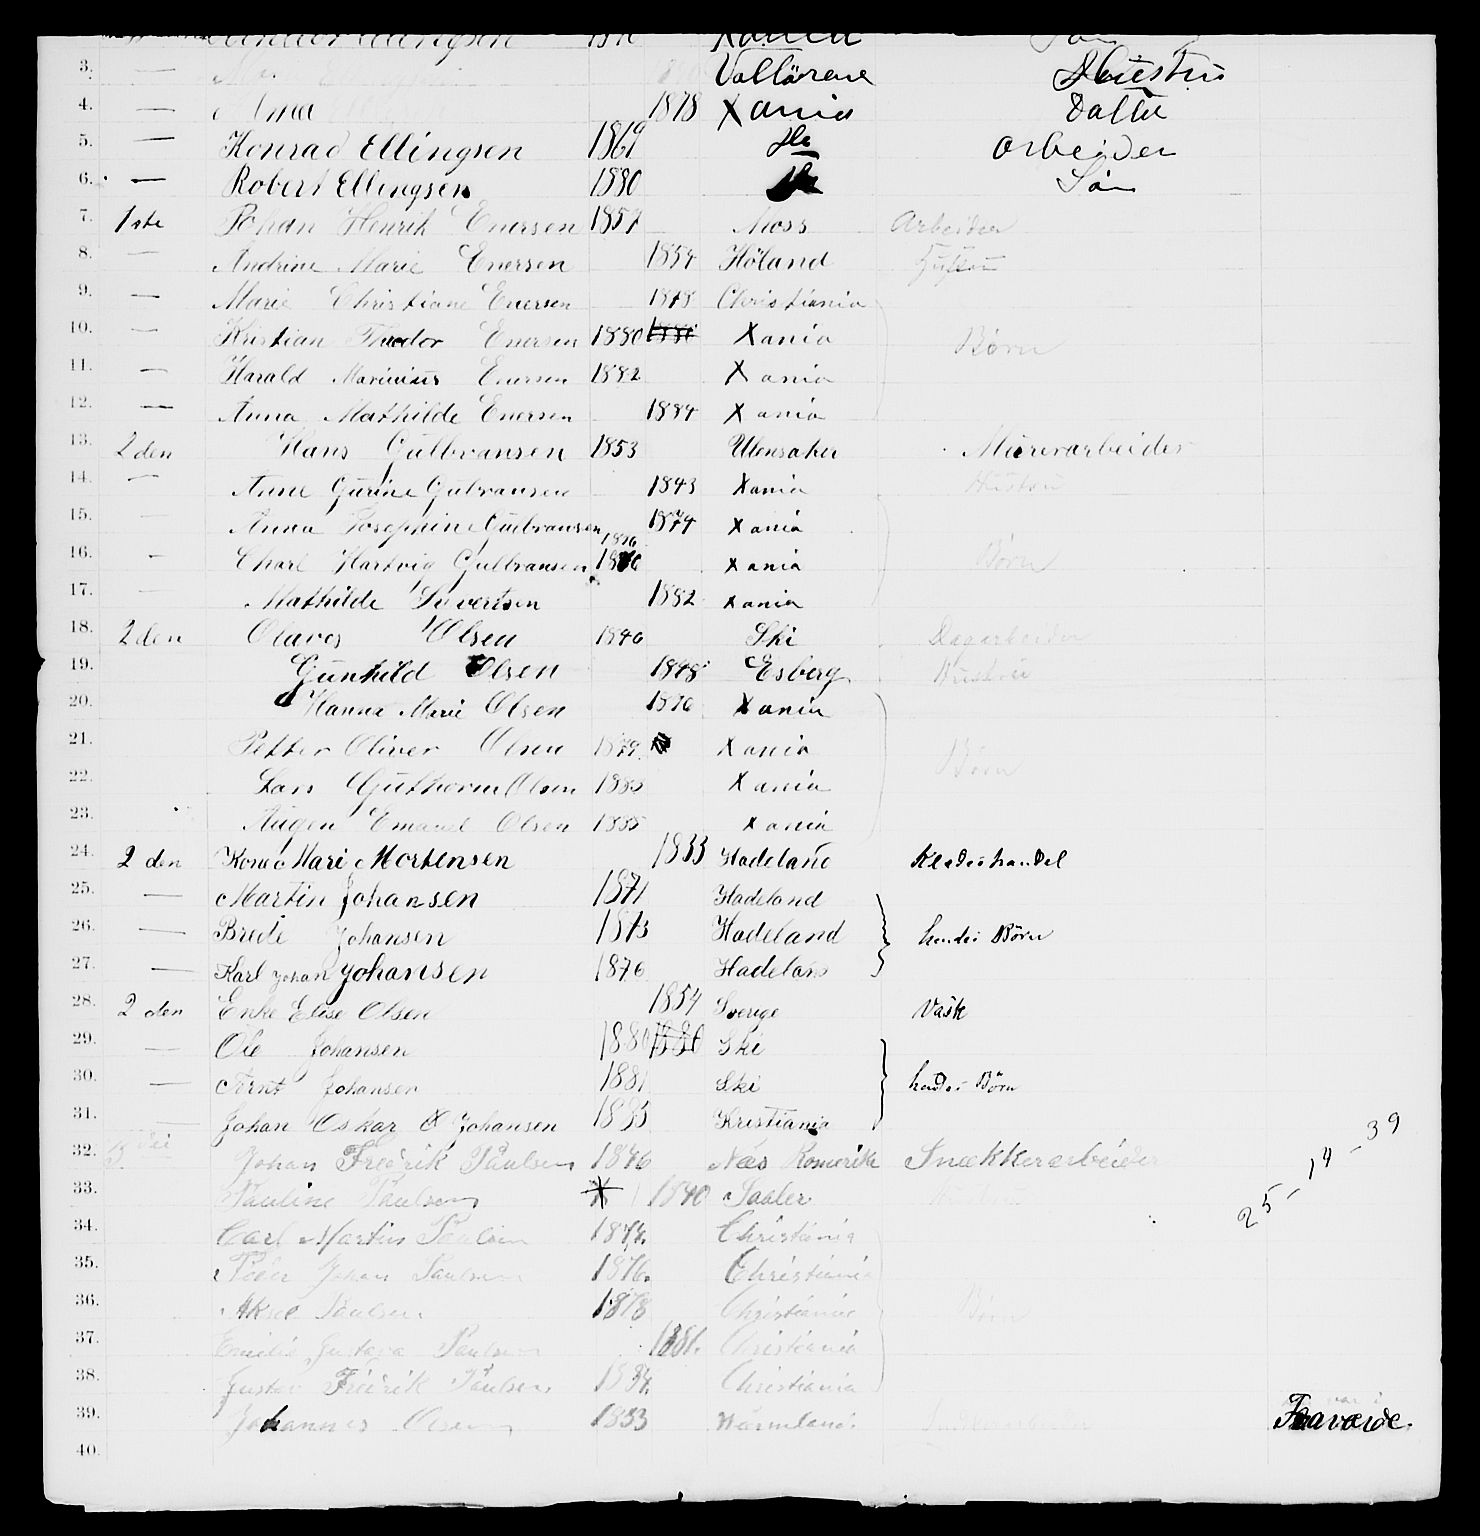 3. — Vallörene Huustru
4. — Alma 1878 Xania Datter
5. — Konrad Ellingsen 1869 do arbeider
6. — Robert Ellingsen 1880 do Søn
7. 1ste Johan Henrik Enersen 1857 Moss Arbeider
8. — Andrine Marie Enersen 1854 Höland Hustru
9. — Marie Christiane Enersen 1878 Christiania
10. — Kristian Theodor Enersen 1880 Xania Børn
11. — Harald Marinius Enersen 1882 Xania
12. — Anna Mathilde Enersen 1884 Xania
13. 2den Hans Gulbransen 1853 Ulensaker Murerarbeider
14. — Anne Gurine Gulbransen 1843 Xania Hustru
15. — Anna Josephine Gulbransen 1874 Xania
16. — Charl Hartvig Gulbransen 1876 Xania Børn
17. — Mathilde Sivertsen 1882 Xania
18. 2den Olaves Olsen 1846 Ski Dagarbeider
19. Gunhild Olsen 1848 Esberg Hustru
20. Hanna Marie Olsen 1876 Xania
21. Petter Oliver Olsen 1879 Xania Børn
22. Lars Guthorm Olsen 1883 Xania
23. Augen Emanuel Olsen 1885 Xania
24. 2 den Kone Mari Mortensen 1833 Hadeland Kledeshandel
25. — Martin Johansen 1871 Hadeland
26. — Brede Johansen 1873 Hadeland hendes Børn
27. — Karl Johan Johansen 1876 Hadeland
28. 2 den Enke Elise Olsen 1854 Sverige Vask
29. — Ole Johansen 1880 1880 Ski
30. — Arnt Johansen 1881 Ski hendes Børn
31. — Johan Oskar Johansen 1885 Kristiania
32. Johan Fredrik Paulsen 1846 Næs Romerike Snækkerarbeider
33. Pauline Paulsen 1840 Saaler
34. Carl Martin Paulsen 1874. Christiania
35. Peder Johan Paulsen 1876. Christiania
36. Aksel Paulsen 1878 Christiania Børn
37. Emilie Gustava Paulsen 1881. Christiania
38. Gustav Fredrik Paulsen 1884. Christiania
39. Johannes Olsen 1853 Wärmland
40.
25 – 14 – 39